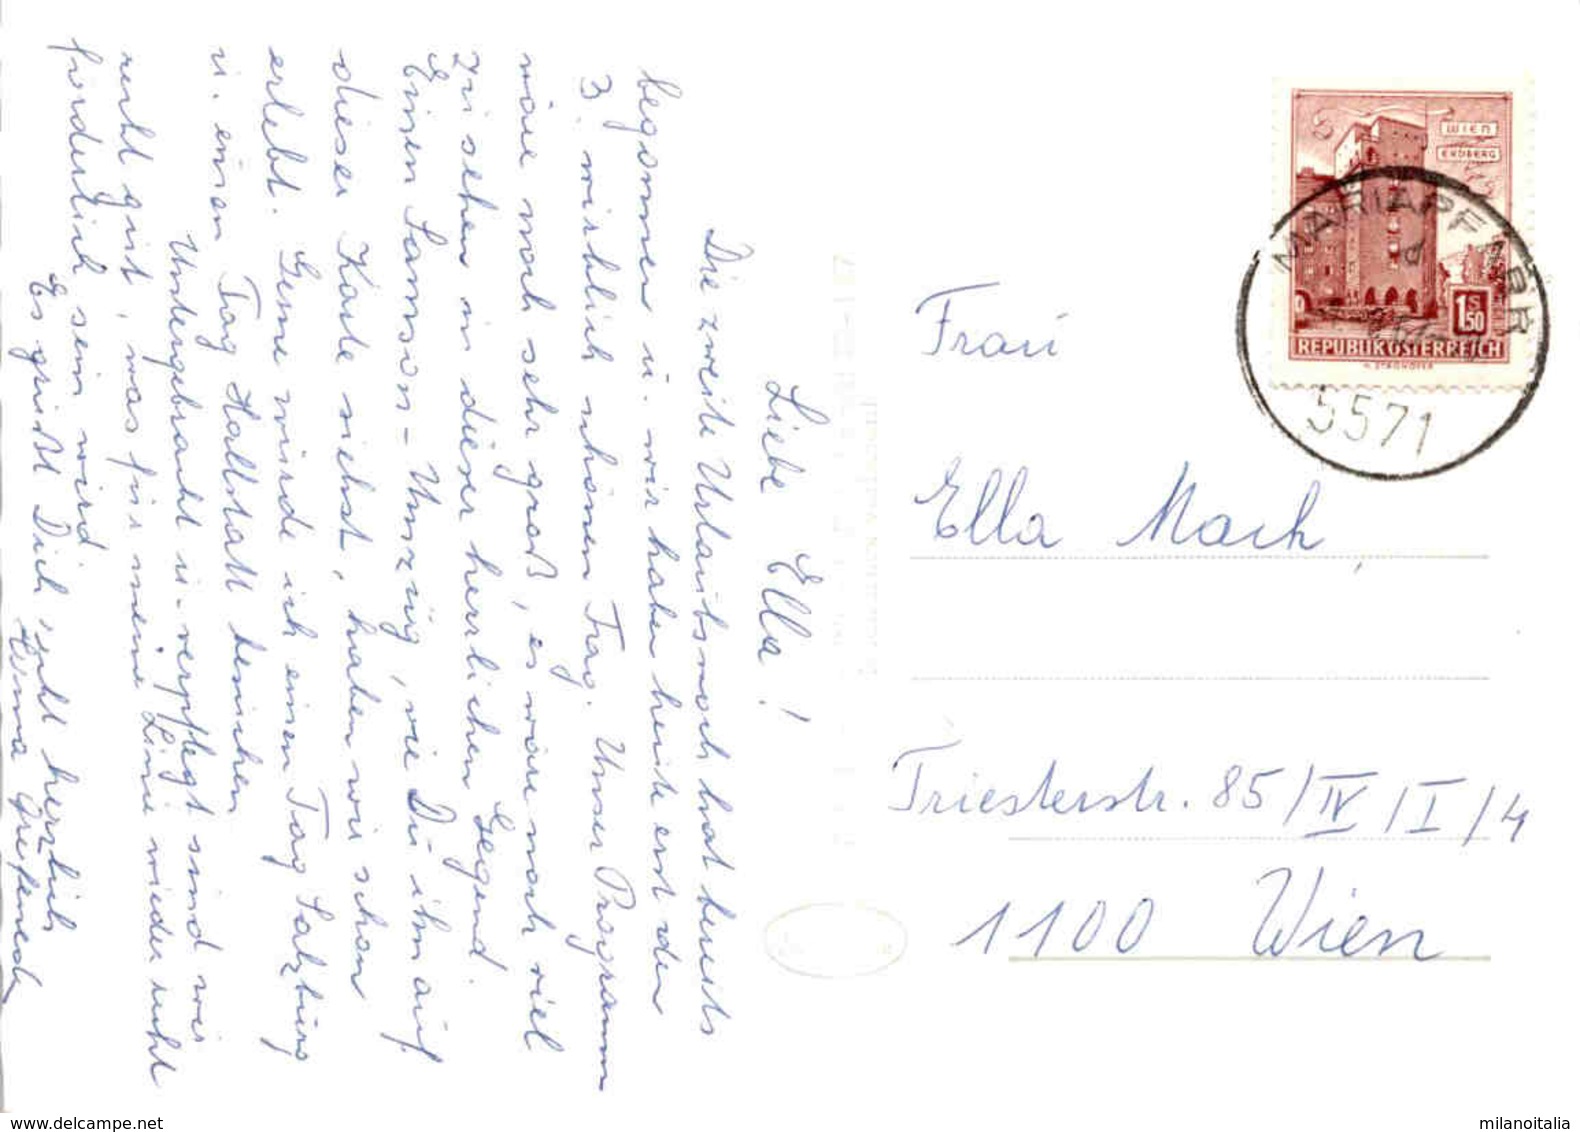 Liebe Ella!
Die zweite Urlaubswoch hat bereits
begonnen u. wir haben heute erst den
3. wirklich schönen Tag. Unser Programm
wäre noch sehr groß, es wäre noch viel
zu sehen in dieser herrlichen Gegend.
Einen Samson-Umzug, wie Du ihn auf
dieser Karte siehst, haben wir schon
erlebt. Gerne würde ich einen Tag Salzburg
u. einen Tag Hallstatt besuchen
Untergebracht u. verpflegt sind wir
recht gut, was für meine Linie wieder nicht
förderlich sein wird.
Es grüßt Dich recht herzlich
WIEN
ERDBERG
1 S 50
REPUBLIK ÖSTERREICH
MARIAPFARR
5571
Frau
Ella Mach
Triesterstr. 85/IV/I/4
1100 Wien
www.delcampe.net
milanoitalia